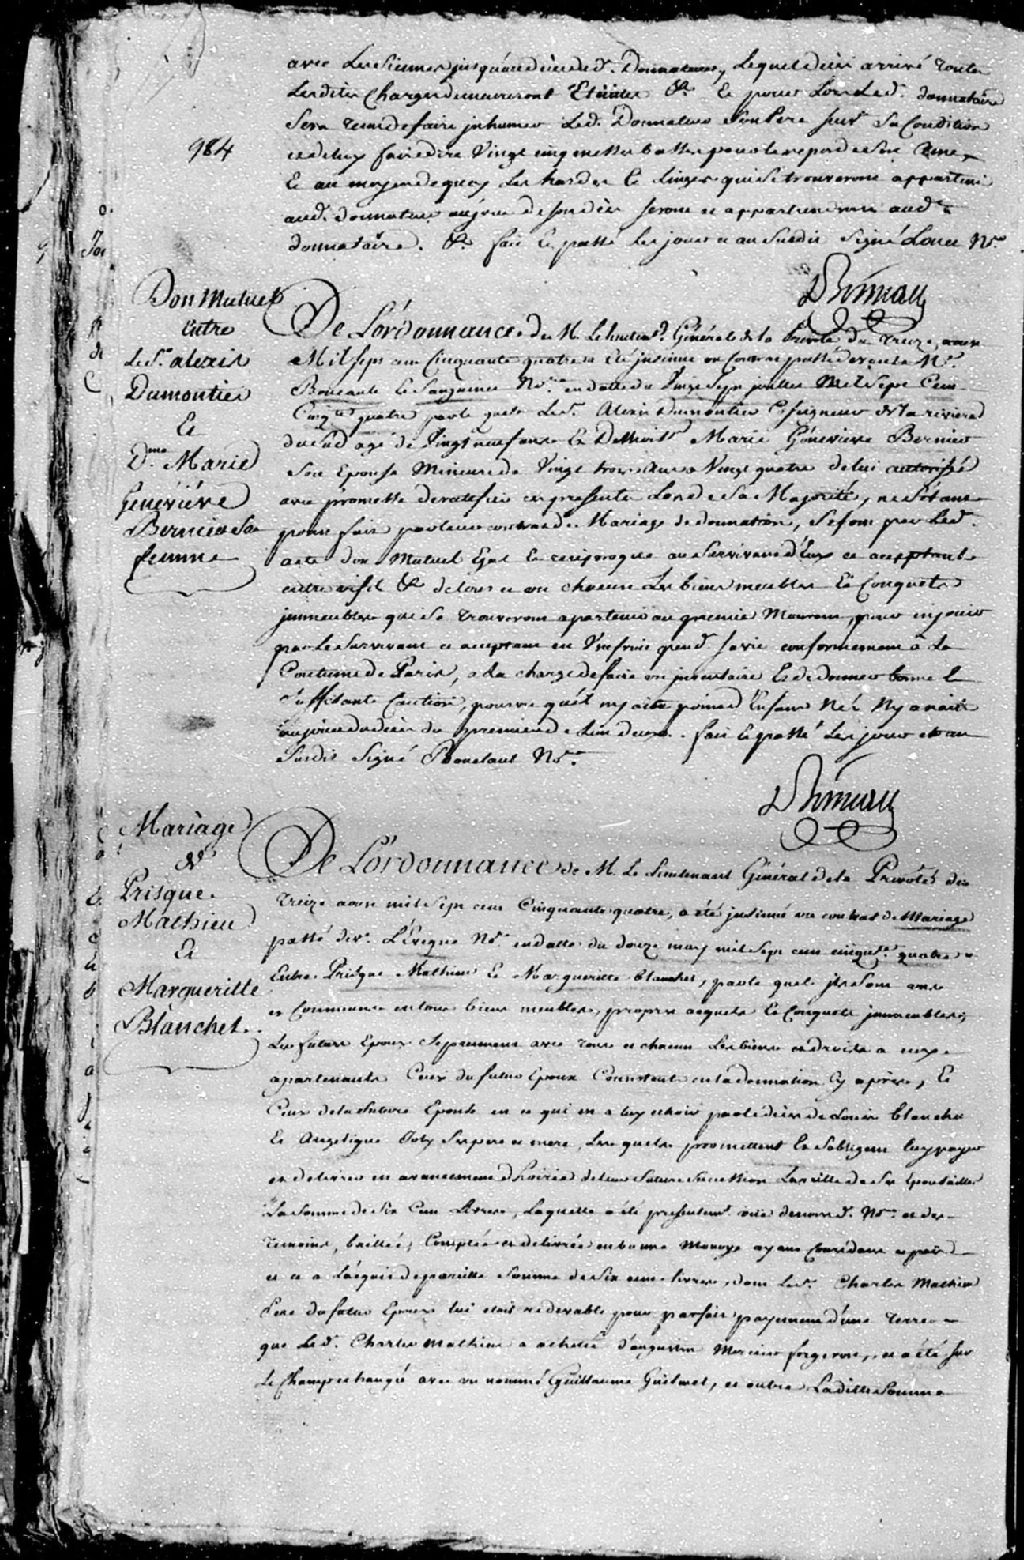 avec les siennes jusqu'au deceds dud. Donnateur, lequel deceds arrivé toutes
lesdites charges demeureront Eteintes &a. Et pour lors led. donnataire
sera tenu de faire inhumer led. Donnateur son Pere suivt. sa Condition
984
et de luy faire dire Vingt cinq messes basses pour le repos de son ame,
Et au moyen de quoy les hardes et linges qui se trouveront appartenir
aud. donnateur au jour de son deceds seront et appartiendront aud.
donnataire. &a. fait et passé les jour et an susdit signé Louet Nre.
Don Mutuel
Entre
le Sr. alexis
Dumontier
Et
Dme. Marie
Geneviéve
Bernier sa
femme
De L'ordonnance de M. Le Lieutent. Général de la Prevôté du Treize aoust
Mil sept cent Cinquante quatre a été insinué un passé devant Me.
Boucault Et Sanguinet Nres. en datte du sept juillet Mil sept Cent
Cinqte. quatre par le quel Led. Alexis Dumontier Seigneur de la riviere
du sud agé de Vingt neuf ans Et Marie Géneviéve Bernier
son Epouse Mineure de Vingt trois ans a Vingt quatre de lui autorisée
avec promesse de ratifier ces presentes Lors de sa Majorité, ne s'étant
point fait par leur contrat de Mariage de donnation, se font par led.
acte don Mutuel Egal et reciproque au survivant d'Eux ce acceptant
entre vifs &a. de tous et un chacun les biens meubles Et Conquets
immeubles qui se trouveront apartenir au premier Mourant, pour en jouir
par le survivant ce acceptant en Usufruit pendt. sa vie conformement a la
Coutume de Paris, a la charge de faire un inventaire Et de donner bonne Et
suffisante Caution, pourvu qu'il n'y ait point d'Enfans Nés Ny a naitre
au jour du deceds du premier de d'eux. fait et passé les jour et an
susdit signé Boucault Nre.
Mariage
de
Prisque
Mathieu
Et
Margueritte
Blanchet
De L'ordonnance de M. Le Lieutenant Général de la Prevôté du
Treize aoust mil sept cent Cinquante quatre, a été insinué un contrat de Mariage
passé devt. L'Evêque Nre. en datte du douze may mil sept cent cinqte. quatre
Entre Prisque Mathieu Et Margueritte Blanchet, par le quel ils sont uns
et Communs en tous biens meubles, propres acquets Et Conquets immeubles,
Les futurs Epoux se prennent avec tous et chacuns les biens et droits a eux
apartenants Ceux du futur Epoux Consistent en la donnation cy après, Et
Ceux de la future Epouse en ce qui en a luy echoir par le deceds de Louis Blanchet
Et Angelique Joly ses pere et mere, Lesquels promettent Et s'obligent luy payer
et delivrer en avancement d'hoirie de leur future succession La veille de ses Epousailles
La somme de six Cent Livres, laquelle a été presentemt. Nre. et des
temoins, baillée, Comptée et delivrée en bonne Monoye ayant Cours dans ce païs
et ce a l'acquit de pareille somme de six cent livres, dont led. Charles Mathieu
Pere du futur Epoux lui etoit redevable pour parfait payement d'une terre
que led. Charles Mathieu a acheté d'augustin Mercier forgeron, et a été sur
le champ echangé avec un nommé Guillaume Guilmet, et outre Laditte somme